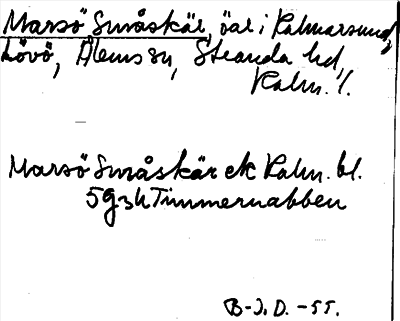 Marsö Småskär, öar i Kalmarsund,
Lövö, Ålems sn, Stranda hd,
Kalm. l.
Marsö Småskär ek Kalm. bl.
5g3h Timmernabben
B-J. D. -55.